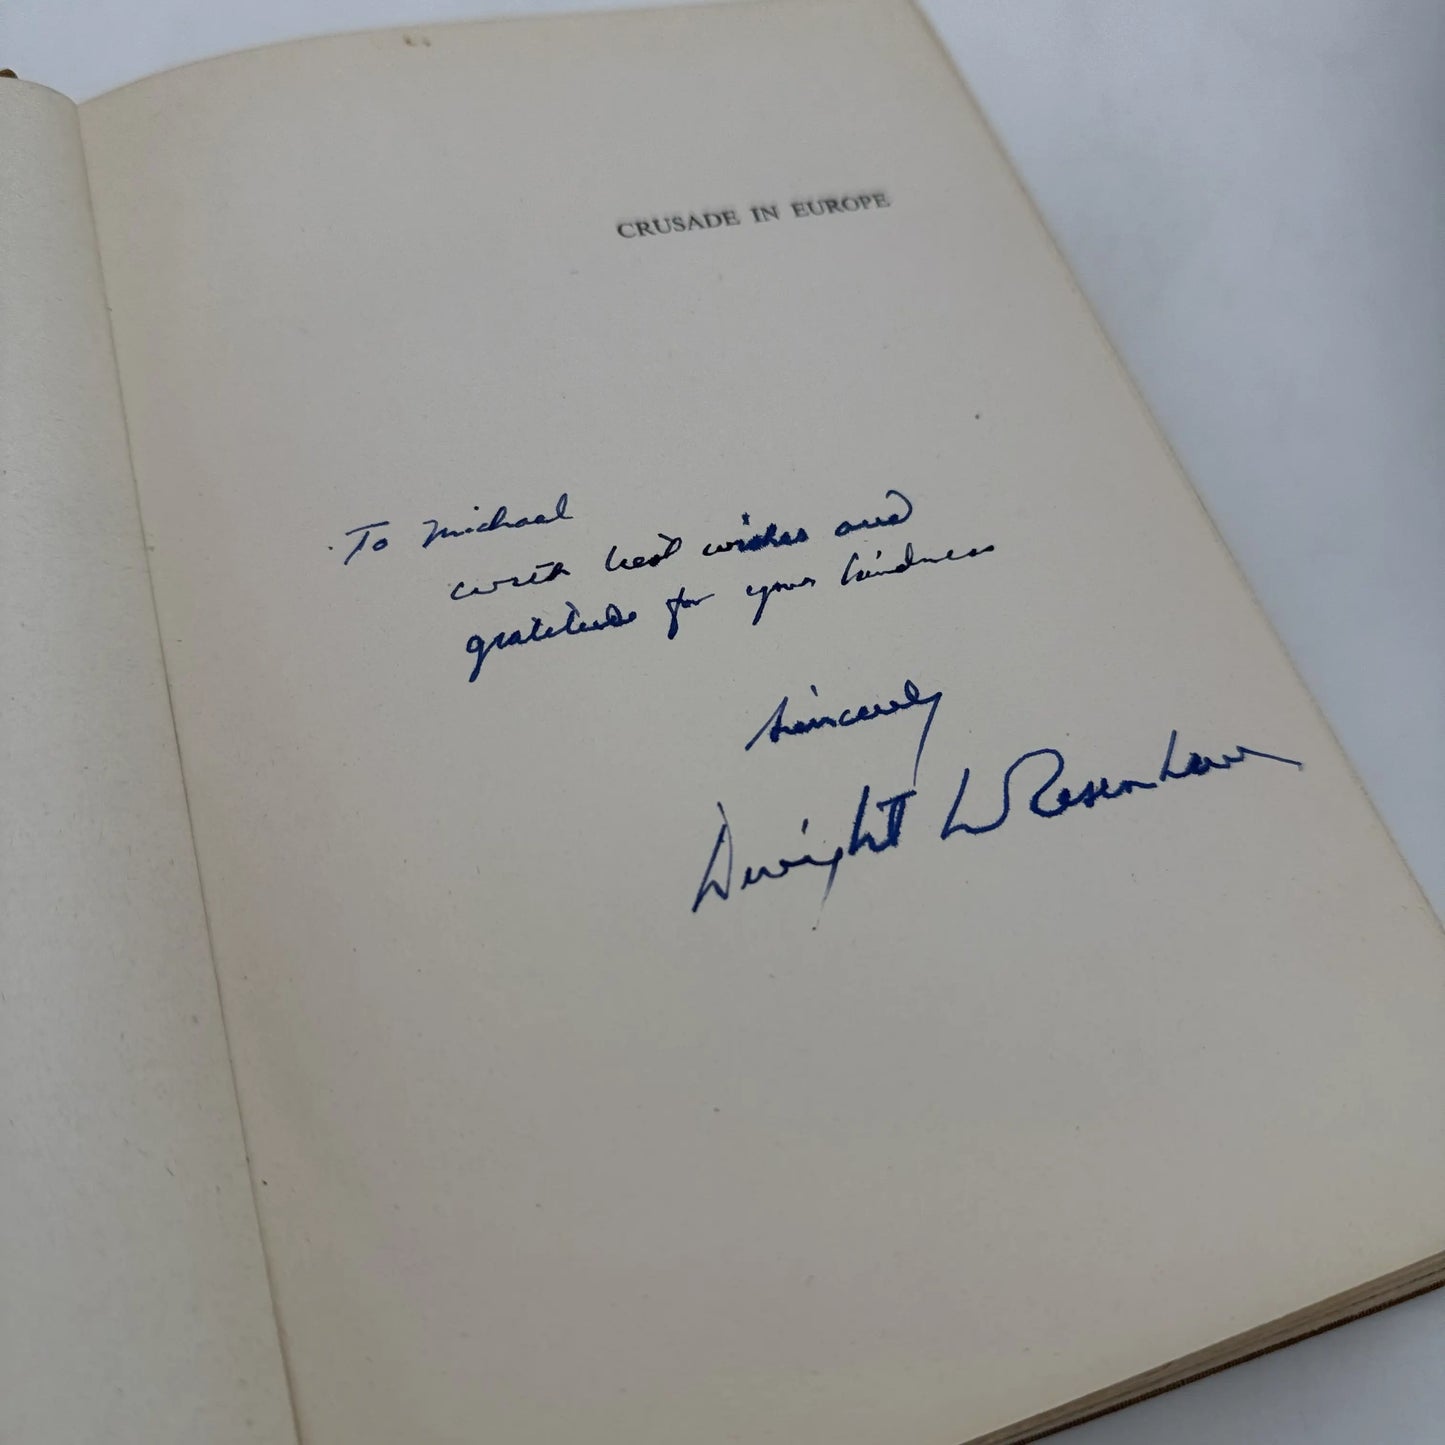 CRUSADE IN EUROPE
To Michael
with best wishes and
gratitude for your kindness
Sincerely
Dwight D Eisenhower